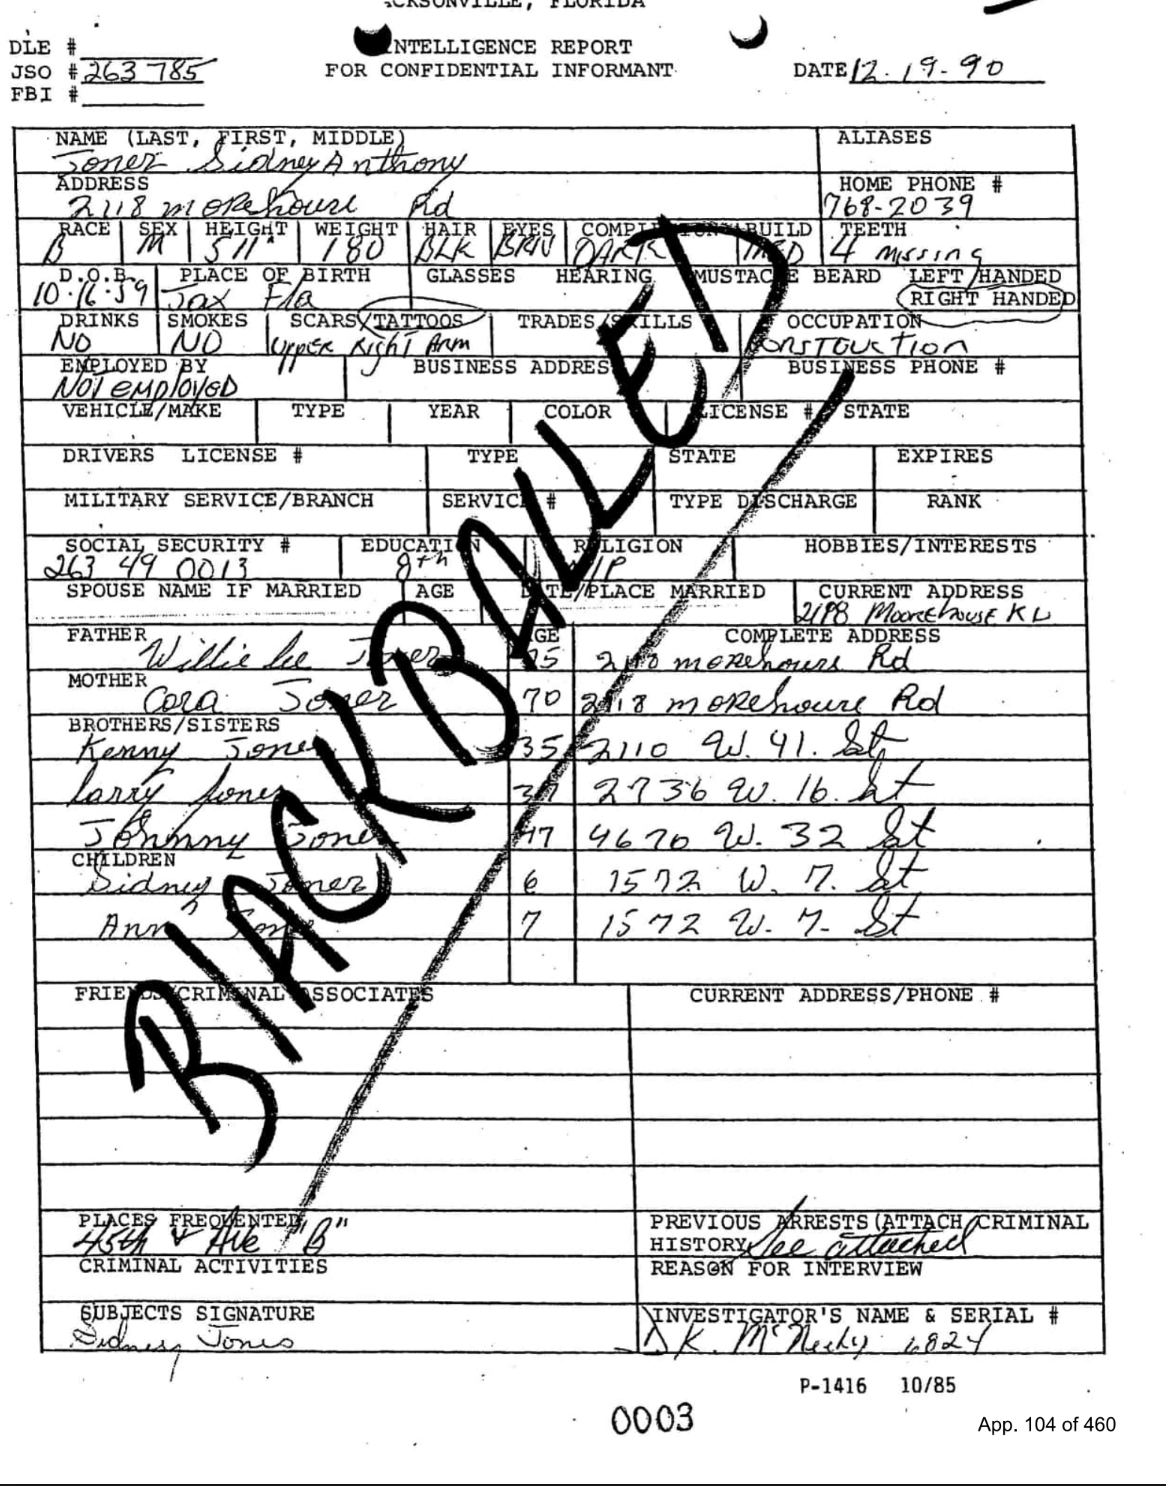 JACKSONVILLE, FLORIDA
DLE #
INTELLIGENCE REPORT
JSO # 263785
FOR CONFIDENTIAL INFORMANT
DATE 12.19-90
FBI #
NAME (LAST, FIRST, MIDDLE) ALIASES
Jones Sidney Anthony
ADDRESS HOME PHONE #
2118 morehouse Rd 768-2039
RACE SEX HEIGHT WEIGHT HAIR EYES COMPLEXION BUILD TEETH
B M 511" 180 BLK BRN DARK MED 4 missing
D.O.B. PLACE OF BIRTH GLASSES HEARING MUSTACHE BEARD LEFT/HANDED
10.16.59 Jax Fla RIGHT HANDED
DRINKS SMOKES SCARS/TATTOOS TRADES/SKILLS OCCUPATION
NO NO Upper Right Arm Constuction
EMPLOYED BY BUSINESS ADDRESS BUSINESS PHONE #
Not employed
VEHICLE/MAKE TYPE YEAR COLOR LICENSE # STATE
DRIVERS LICENSE # TYPE STATE EXPIRES
MILITARY SERVICE/BRANCH SERVICE # TYPE DISCHARGE RANK
SOCIAL SECURITY # EDUCATION RELIGION HOBBIES/INTERESTS
263 49 0013 8th
SPOUSE NAME IF MARRIED AGE DATE/PLACE MARRIED CURRENT ADDRESS
FATHER AGE COMPLETE ADDRESS
Willie Lee Jones 75 morehouse Rd
MOTHER
Cora Jones 70 2118 morehouse Rd
BROTHERS/SISTERS
Kenny Jones 35 2110 W. 41. St
Larry Jones 2736 W. 16. St
Johnny Jones 47 4670 W. 32 St
CHILDREN
Sidney Jones 6 1572 W. 7. St
Ann Jones 7 1572 W. 7. St
BlACKBALLED
FRIENDS/CRIMINAL ASSOCIATES CURRENT ADDRESS/PHONE #
PLACES FREQUENTED PREVIOUS ARRESTS (ATTACH CRIMINAL
45th & Ave "B" HISTORY See attached
CRIMINAL ACTIVITIES REASON FOR INTERVIEW
SUBJECTS SIGNATURE INVESTIGATOR'S NAME & SERIAL #
Sidney Jones K. McNeely 6824
P-1416 10/85
0003
App. 104 of 460